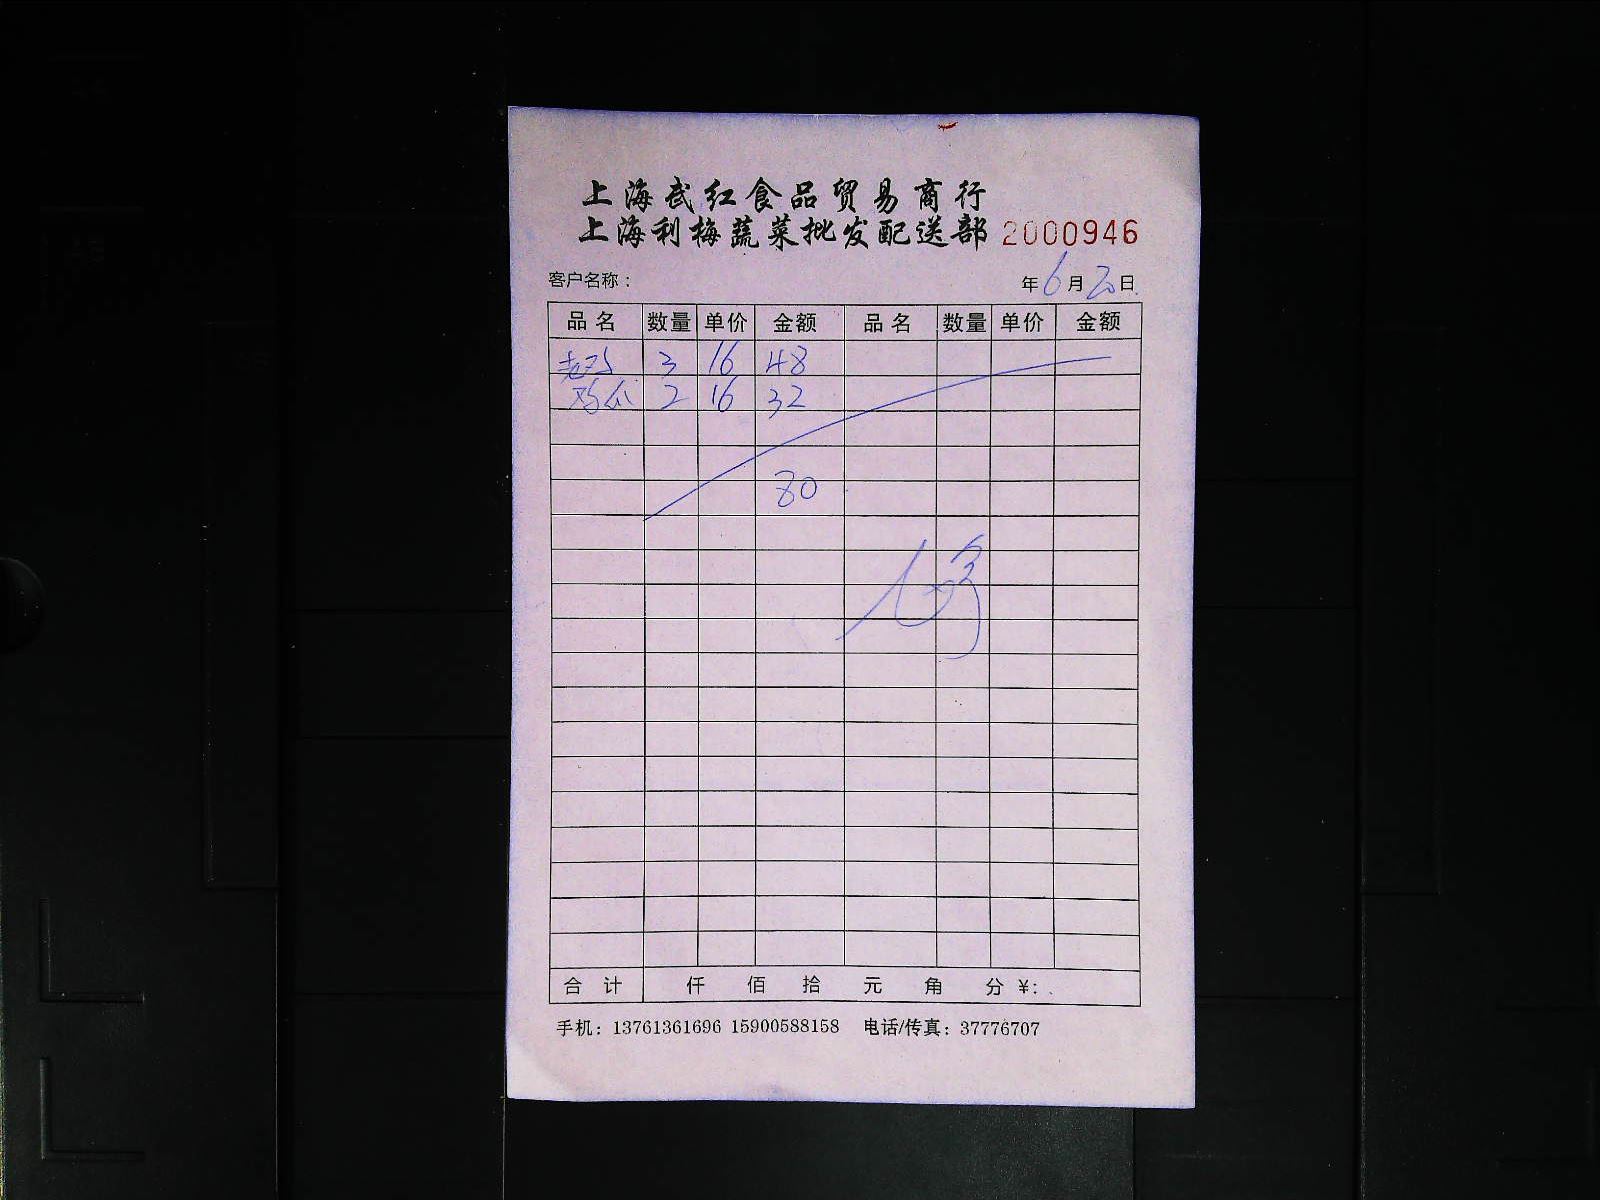 上海武红食品贸易商行
上海利梅蔬菜批发配送部 2000946
客户名称： 年6月20日
品名 数量 单价 金额 品名 数量 单价 金额
老鸡 3 16 48
鸡爪 2 16 32
80
合计 仟 佰 拾 元 角 分 ¥:
手机：13761361696 15900588158 电话/传真：37776707